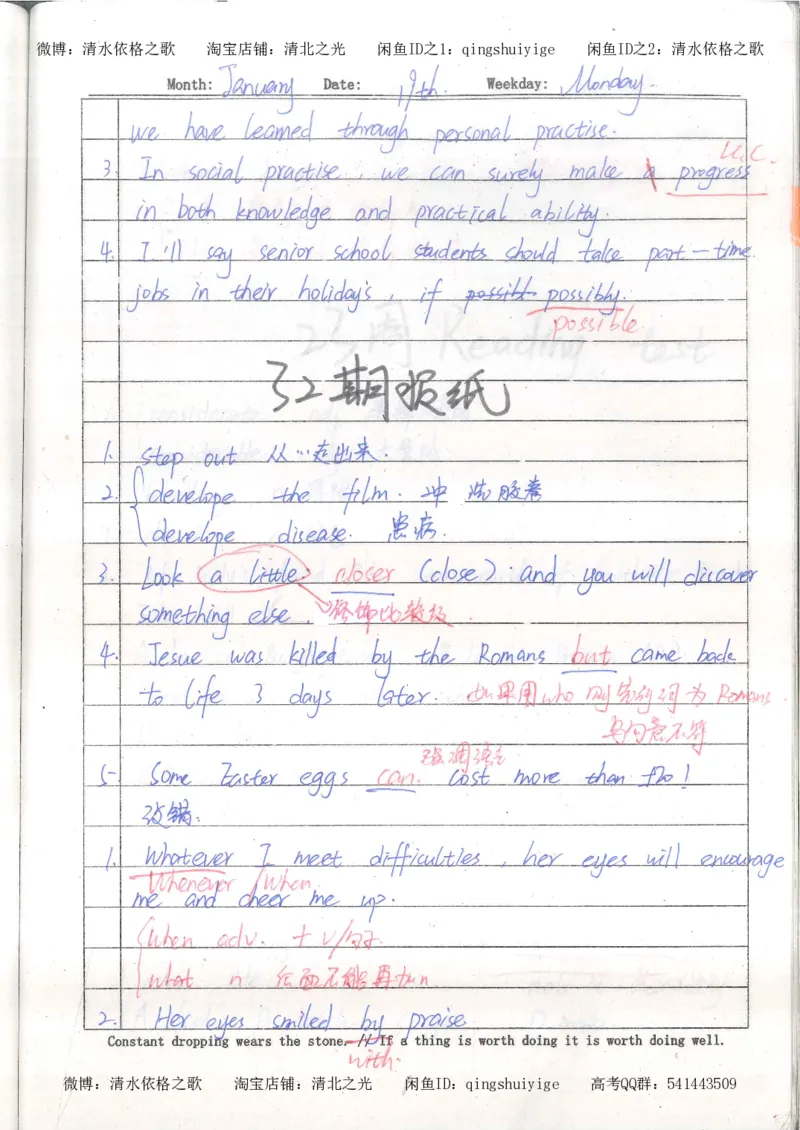 微博：清水依格之歌 淘宝店铺：清北之光 闲鱼ID之1：qingshuiyige 闲鱼ID之2：清水依格之歌
Month: January Date: 19th. Weekday: Monday.
we have learned through personal practise.
U.C.
3. In social practise, we can surely make a progress
in both knowledge and practical ability.
4. I'll say senior school students should take part-time
jobs in their holidays, if possibl possibly.
possible
23周 Reading test
32期报纸
1. step out 从…走出来.
2. develope the film. 冲洗胶卷
develope disease. 患病.
3. Look a little closer (close) and you will discover
something else. 修饰比较级.
4. Jesue was killed by the Romans but came back
to life 3 days later. 如果用who 则先行词为Romans
与句意不符
强调语气
5. Some Easter eggs can. cost more than £10!
改错:
1. Whatever I meet difficulties, her eyes will encourage
Whenever / When
me and cheer me up.
when adv. + v/句子
what n 后面不能再加n
2. Her eyes smiled by praise
Constant dropping wears the stone. // If a thing is worth doing it is worth doing well.
with.
微博：清水依格之歌 淘宝店铺：清北之光 闲鱼ID：qingshuiyige 高考QQ群：541443509